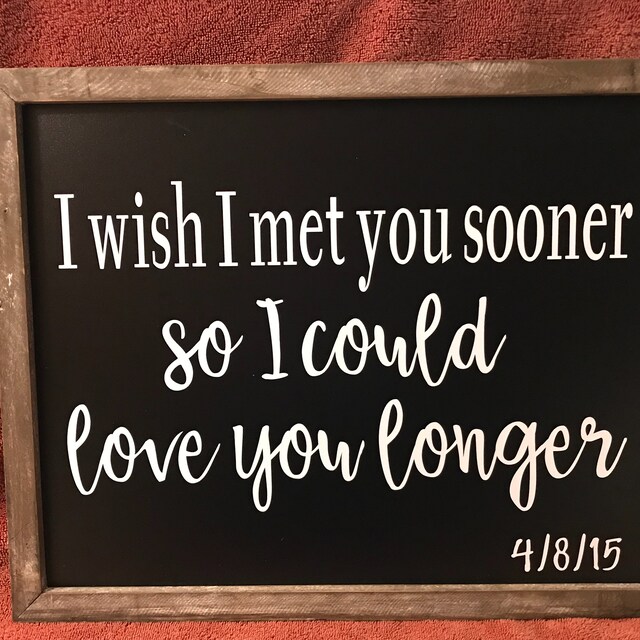 I wish I met you sooner
so I could
love you longer
4/8/15